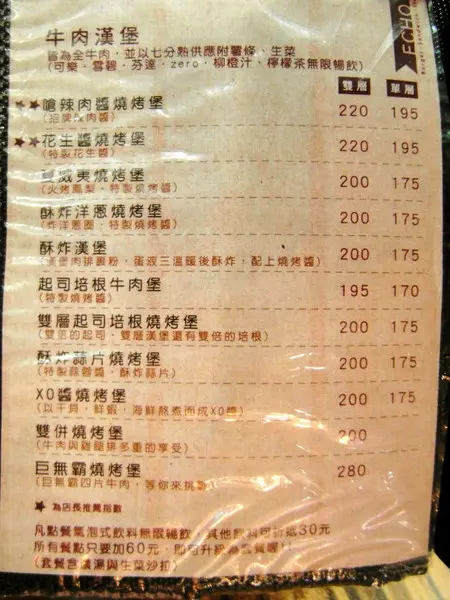 ECHO
牛肉漢堡
皆為全牛肉，並以七分熟供應附薯條、生菜
(可樂、雪碧、芬達、zero、柳橙汁、檸檬茶無限暢飲)
雙層 單層
★★嗆辣肉醬燒烤堡 220 195
肉醬)
★★花生醬燒烤堡 220 195
(特製花生醬)
夏威夷燒烤堡 200 175
(火烤鳳梨、特製燒烤醬)
酥炸洋蔥燒烤堡 200 175
(炸洋蔥圈、特製燒烤醬)
酥炸漢堡 200 175
(漢堡肉排裹粉，蛋液三溫暖後酥炸，配上燒烤醬)
起司培根牛肉堡 195 170
(特製燒烤醬)
雙層起司培根燒烤堡 200 175
(雙倍的起司、雙層漢堡還有雙倍的培根)
酥炸蒜片燒烤堡 200 175
(特製蒜蓉醬、酥炸蒜片)
XO醬燒烤堡 200 175
(以干貝、鮮蝦、海鮮熬煮而成XO醬)
雙併燒烤堡 200
(牛肉與雞腿排多重的享受)
巨無霸燒烤堡 280
(巨無霸四片牛肉，等你來挑戰)
★ 為店長推薦指數
凡點餐氣泡式飲料無限暢飲，其他飲料可折抵30元
所有餐點只要加60元，即可升級為套餐喔!!
(套餐含濃湯與生菜沙拉)